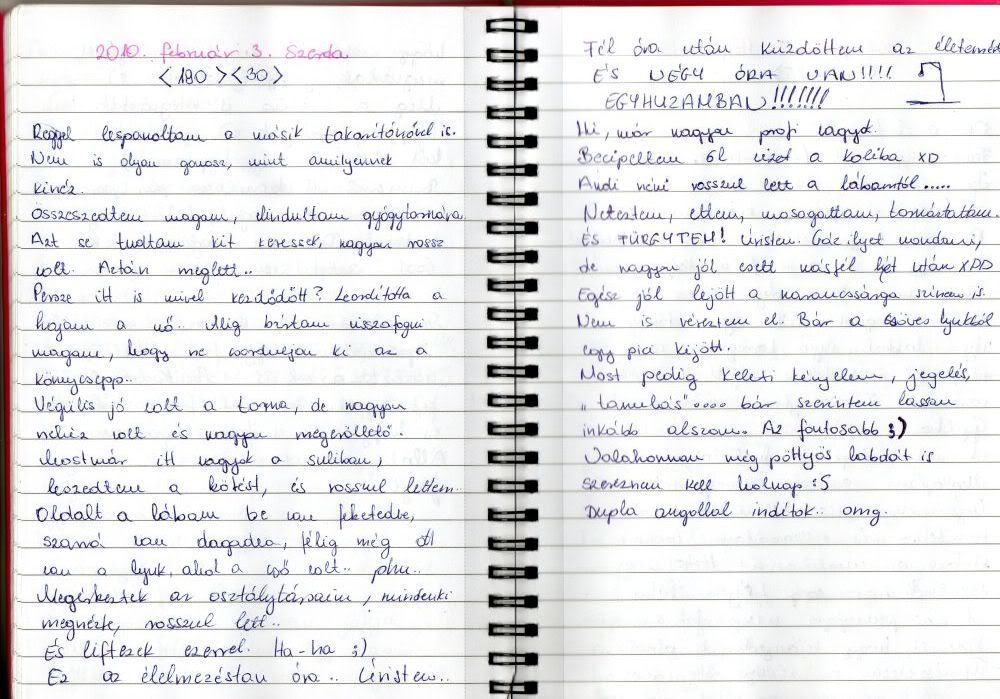 2010. február 3. Szerda
<180><30>
Reggel lespanoltam a másik takarítónővel is.
Nem is olyan gonosz, mint amilyennek
kinéz.
Összeszedtem magam, elindultam gyógytornára.
Azt se tudtam kit keressek, nagyon rossz
volt. Aztán meglett..
Persze itt is mivel kezdődött? Leordította a
hajam a nő.. Alig bírtam visszafogni
magam, hogy ne csorduljon ki az a
könnycsepp..
Végülis jó volt a torna, de nagyon
nehéz volt és nagyon megerőltető.
Mostmár itt vagyok a suliban,
leszedtem a kötést, és rosszul lettem..
Oldalt a lábam be van feketedve,
szaná van dagadva, félig még
van a lyuk, ahol a cső volt.. phu..
Megérkeztek az osztálytársaim, mindenki
megnézte, rosszul lett..
És liftezek ezerrel. Ha-ha ;)
Ez az élelmezéstan óra.. Úristen..
Fél óra után küzdöttem az életemért
ÉS NÉGY ÓRA VAN!!!!
EGYHUZAMBAN!!!!!!!
Hi, már nagyon profi vagyok.
Becipeltem 6l vizet a koliba XD
Andi néni rosszul lett a lábamtól.....
Neteztem, ettem, mosogattam, tornáztattam.
ÉS FÜRGYTEM! Úristen. Gáz ilyet mondani,
de nagyon jól esett másfél hét után XDD
Egész jól lejött a narancssárga színem is.
Nem is véreztem el. Bár a csöves lyukból
egy pici kijött.
Most pedig keleti kényelem, jegelés,
"tanulás".... bár szerintem lassan
inkább alszom. Az fontosabb ;)
Valahonnan még pöttyös labdát is
szereznem kell holnap :S
Dupla angollal indítok.. omg.